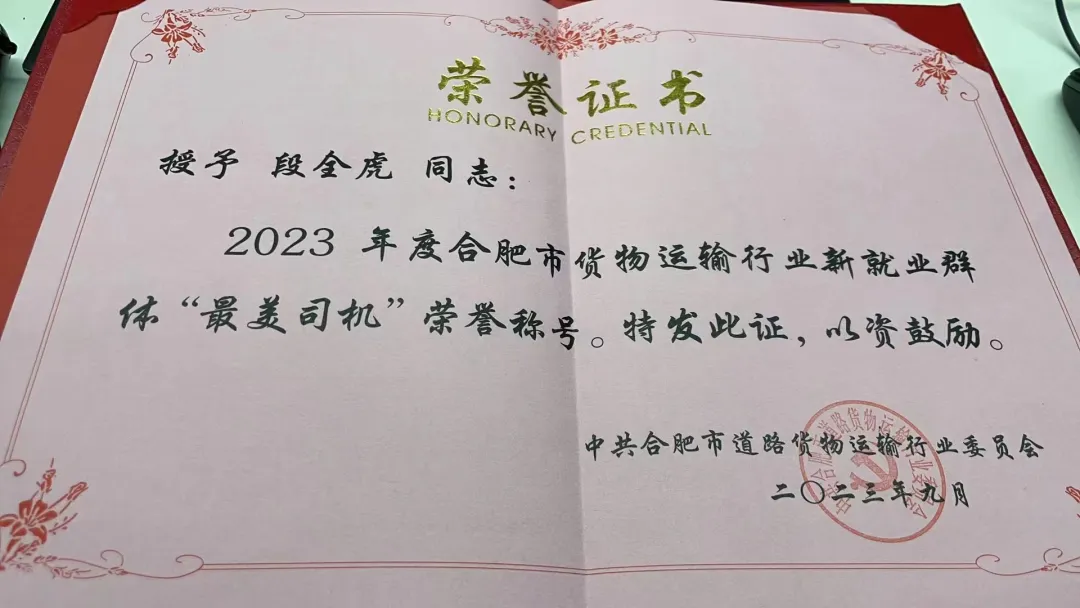 荣誉证书
HONORARY CREDENTIAL
授予 段全虎 同志：
2023 年度合肥市货物运输行业新就业群
体“最美司机”荣誉称号。特发此证，以资鼓励。
中共合肥市道路货物运输行业委员会
二〇二三年九月
中共合肥市道路货物运输行业委员会